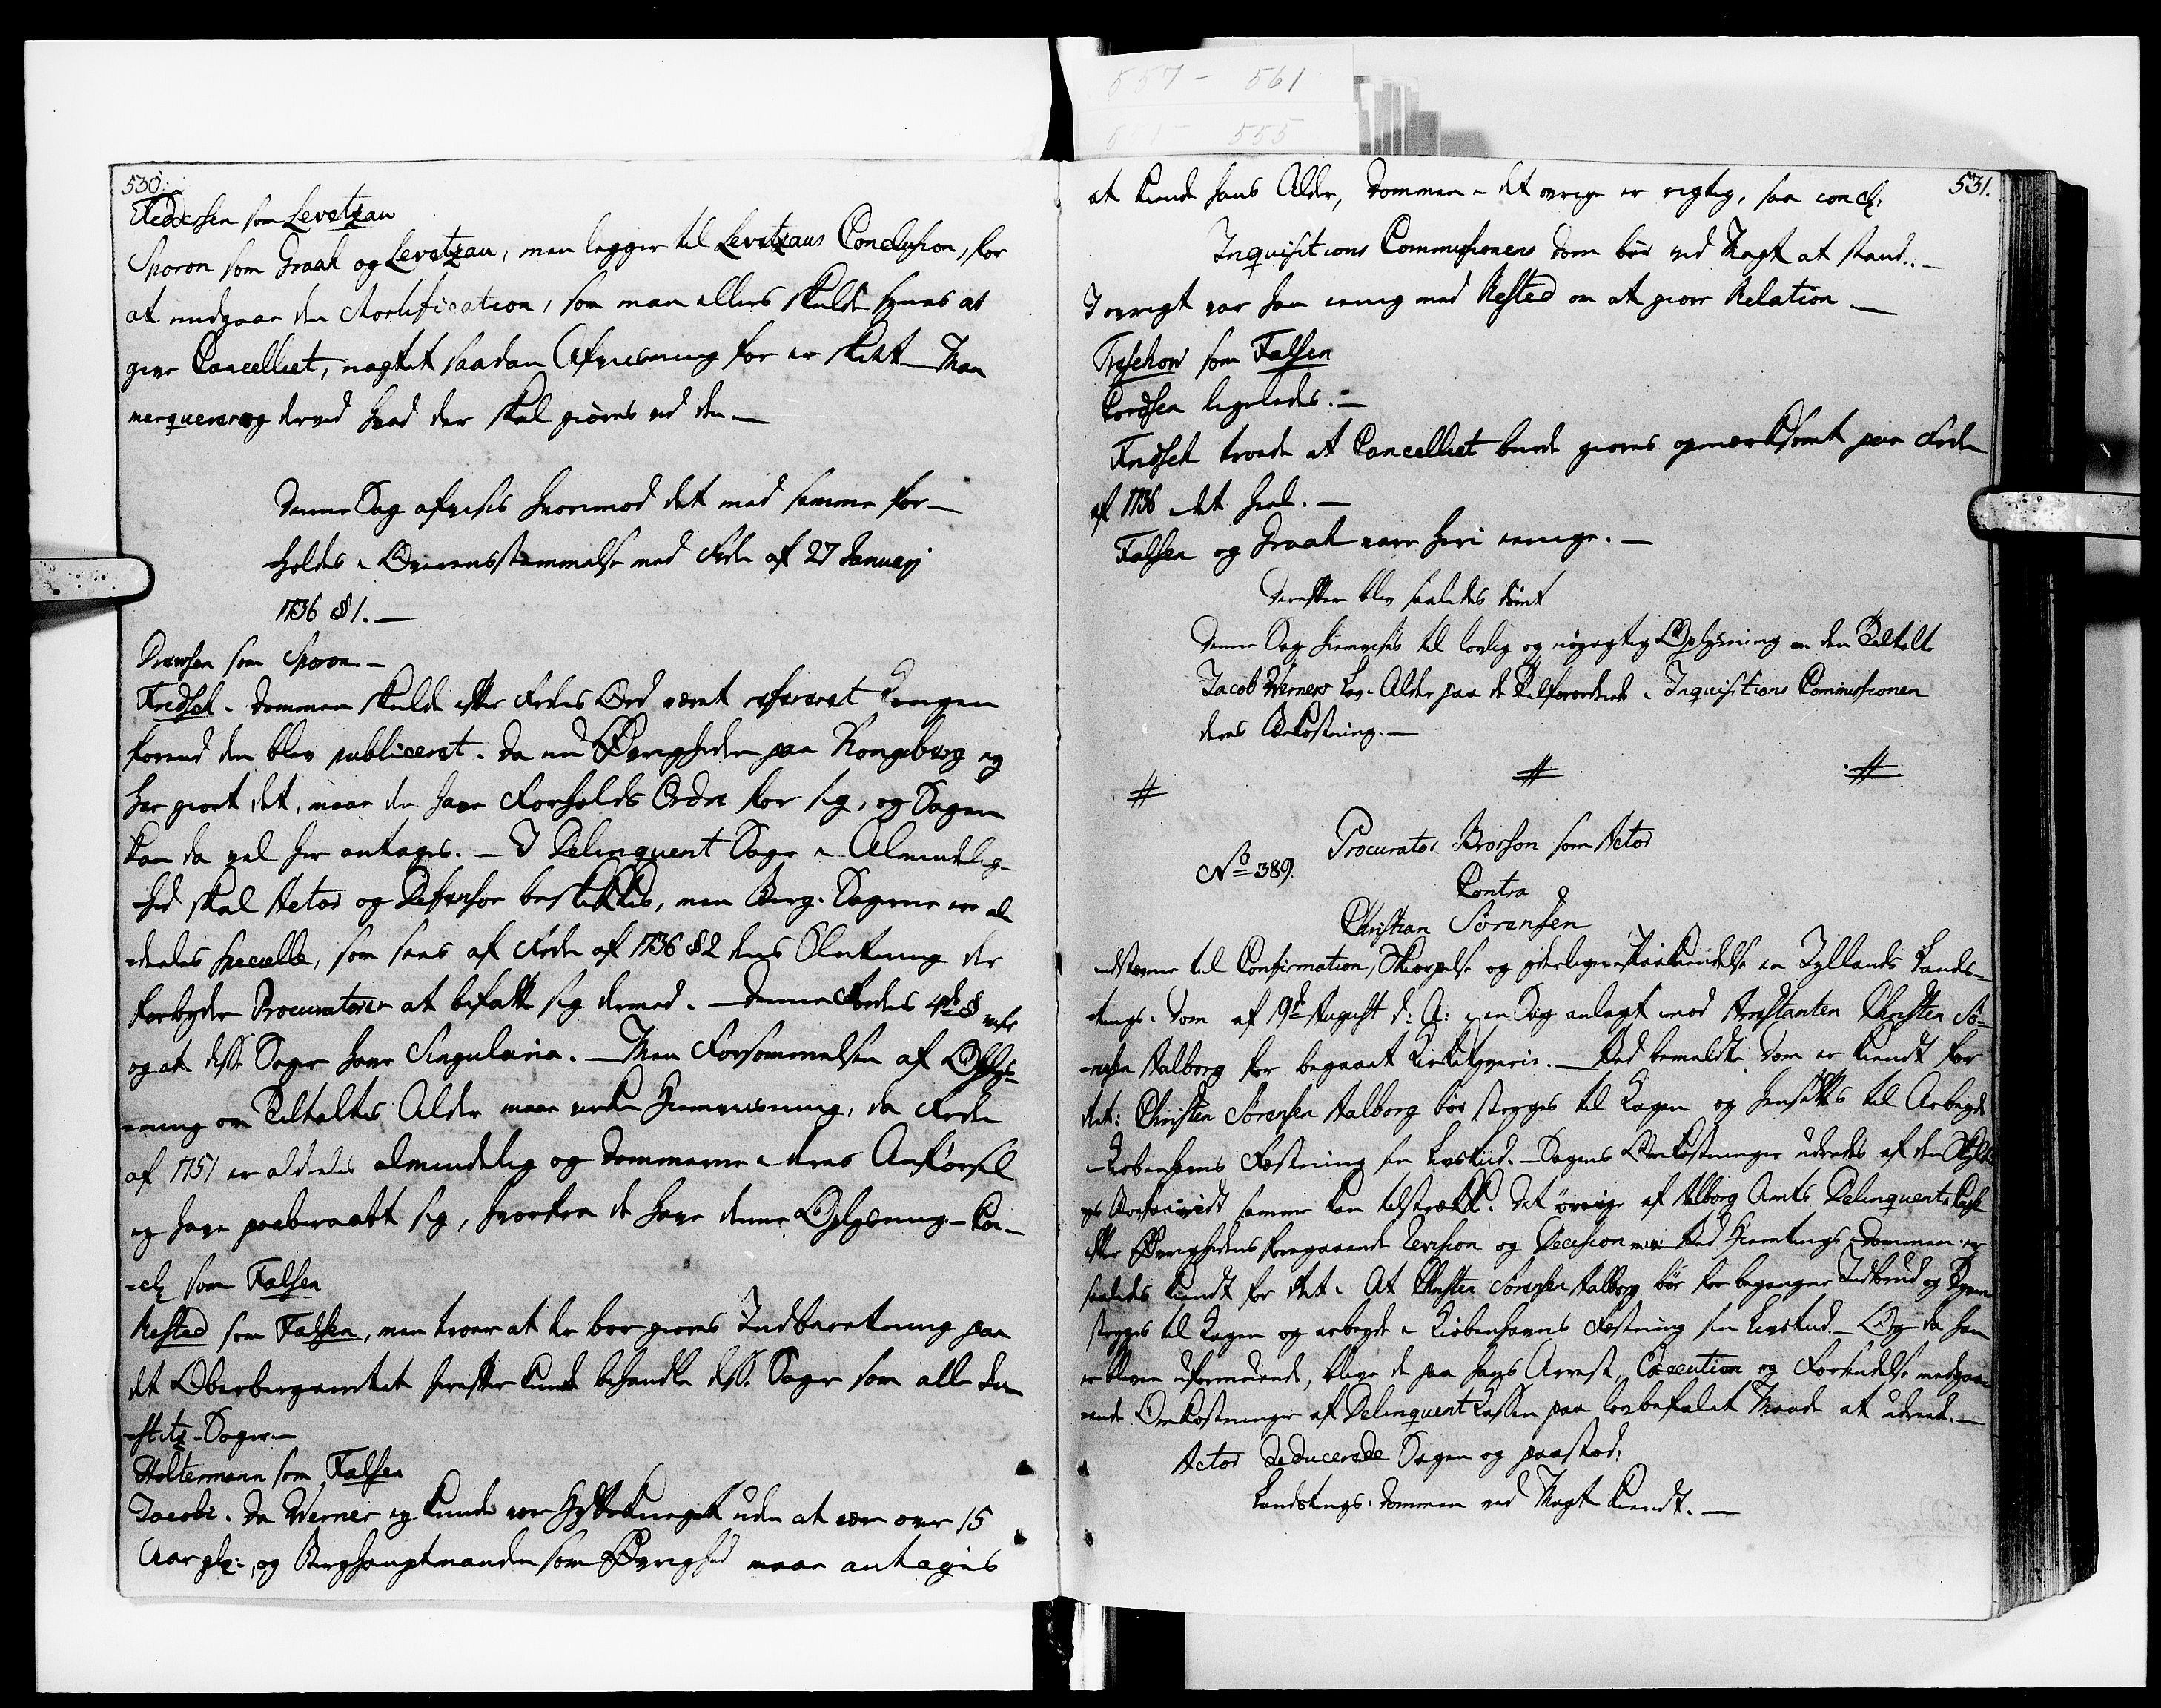 557 - 561
555
530.
Feddersen som Levetzau
Sporon som Graah og Levetzau, men legger til Levetzaus Conclusion, for
at undgaae den Mortification, som man ellers skulde synes at
give Cancelliet, uagtet saadan Afviisning før er skeet. Man
merquerer og derved hvad der skal giøres ved den. —
Denne Sag afvises hvorimod det med samme for-
-holdes i Overensstemmelse med Frdn af 27 Januarj
1736 § 1. —
Drewsen som Sporon. —
Fridsch. Dommen skulde efter Frdns Ord været refereret Kongen
forend den blev publiceret. Da nu Øvrigheden paa Kongsberg ej
har giort det, maae den have Forholds Ordre for sig, og Sagen
kan da vel her antages. — I Delinquent Sager i Almindelig-
-hed skal Actor og Defensor beskikkes, men Berg-Sagerne ere al-
-deeles specielle, som sees af Frdn af 1736 § 2 dens Slutning der
forbyder Procuratorer at befatte sig dermed. — Denne Frdns 4de §
og at disse Sager have Singularia. — Men Forsømmelsen af Oplys-
-ning om Tiltaltes Alder maae virke Hiemviisning, da Frdn
af 1751 er aldeles almindelig og Dommerne i deres Anførsel
ej have paaberaabt sig, hvorfra de have denne Oplysning. Con-
-cl: som Falsen
Rested som Falsen, men troer at der bør giøres Indberetning paa
det Oberbergamtet herefter kunde behandle disse Sager som alle Ju-
-stitz-Sager. —
Stoltermann som Falsen
Jacobi. Da Werner ej kunde være Hyttedreng uden at være over 15
Aar gl:, og Berghauptmanden som Øvrighed maae antages
531.
at kiende hans Alder, Dommen i det øvrige er rigtig, saa concl:
Inquisitions Commissionens Dom bør ved Magt at stande. —
I øvrigt var han eenig med Rested om at giøre Relation. —
Treschow som Falsen
Cordsen ligeledes. —
Fridsch troede at Cancelliet burde giøres opmærksomt paa Frdn
af 1736 i det heele. —
Falsen og Graah vare heri eenige. —
Derefter blev saaledes dømt
Denne Sag hiemvises til lovlig og nøyagtig Oplysning om den Tiltalte
Jacob Werners Alder paa de Tilforordnede i Inquisitions Commissionen
deres Bekostning. —
# # #
No 389.
Procurator Brorson som Actor
Contra
Christian Sørensen
indstævner til Confirmation, Skierpelse og yderligere Paakiendelse en Jyllands Lands-
-tings-Dom af 19de August d: A: i en Sag anlagt mod Arrestanten Christen Sø-
-rensen Aalborg for begaaet Kirketyverie. — Ved bemeldte Dom er kiendt for
Ret: Christen Sørensen Aalborg bør stryges til Kagen og hensættes til Arbeyde
i Kiøbenhavns Fæstning sin Livstid. — Sagens Omkostninger udredes af den Skyldi-
samme kan tilstrække. Det øvrige af Aalborg Amts Delinquent Casse
efter Øvrighedens foregaaende Revision og Decision. Ved Hiemtings Dommen er
saaledes kiendt for Ret. At Christen Sørensen Aalborg bør for begangne Indbrud og Tyverie
stryges til Kagen og arbeyde i Kiøbenhavns Fæstning sin Livstid. — Og da han
er bleven uformuende, blive de paa hans Arrest, Execution og Forsendelse medgaa-
-ende Omkostninger af Delinquent Cassen paa lovbefalet Maade at udrede. —
Actor deducerede Sagen og paastod:
Landstings-Dommen ved Magt kiendt. —